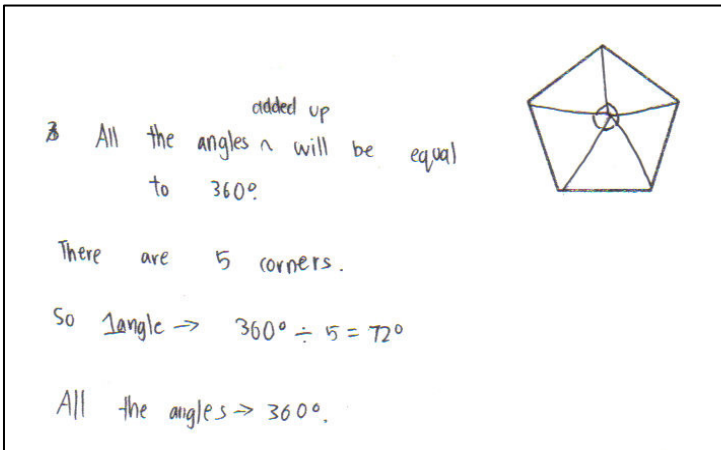 All the angles ^ added up will be equal
to 360°.
There are 5 corners.
So 1angle → 360° ÷ 5 = 72°
All the angles → 360°.